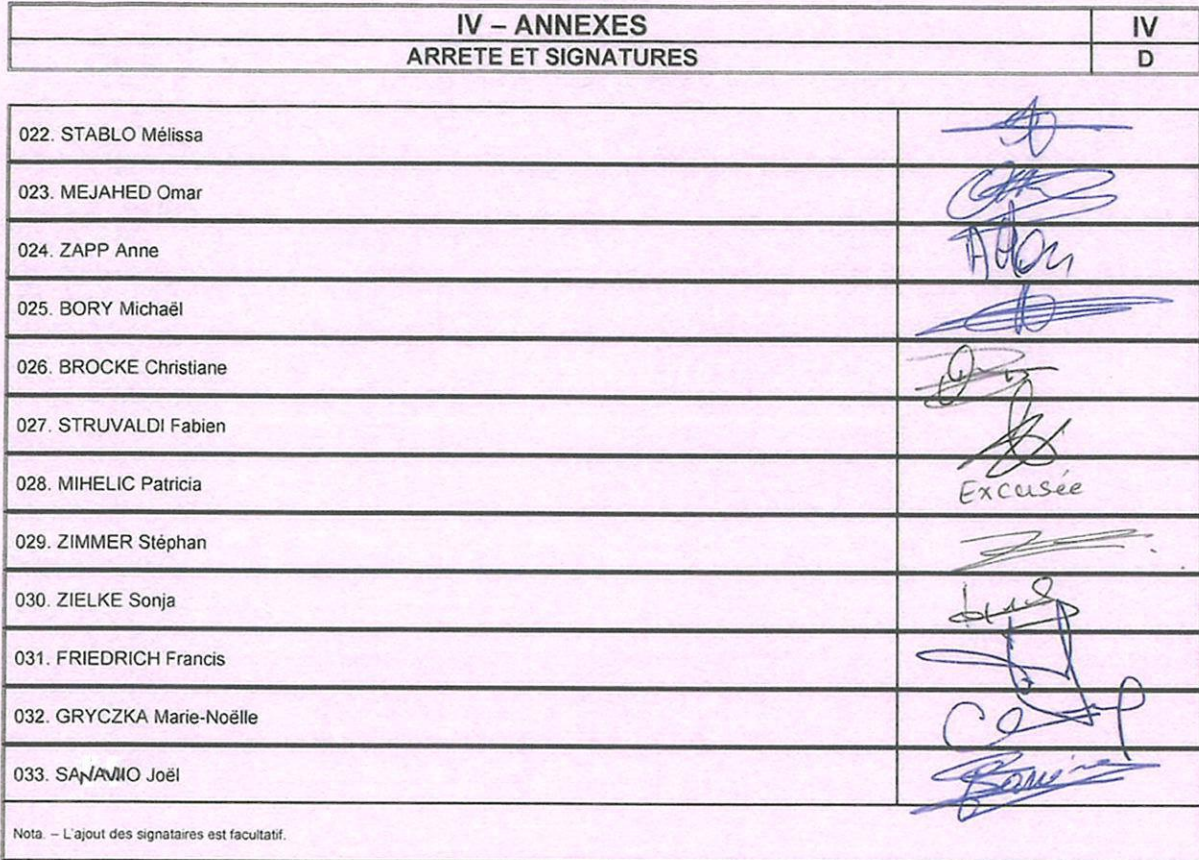 IV – ANNEXES
IV
ARRETE ET SIGNATURES
D
022. STABLO Mélissa
023. MEJAHED Omar
024. ZAPP Anne
025. BORY Michaël
026. BROCKE Christiane
027. STRUVALDI Fabien
028. MIHELIC Patricia
Excusée
029. ZIMMER Stéphan
030. ZIELKE Sonja
031. FRIEDRICH Francis
032. GRYCZKA Marie-Noëlle
033. Joël
Nota. – L'ajout des signataires est facultatif.